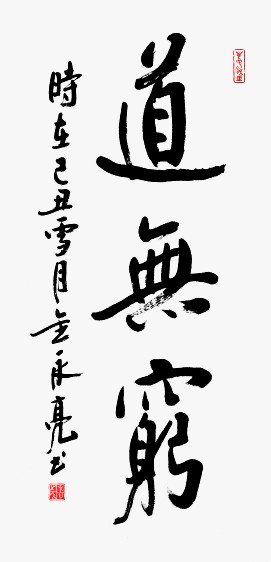 道無窮
時在己丑雪月金永亮书